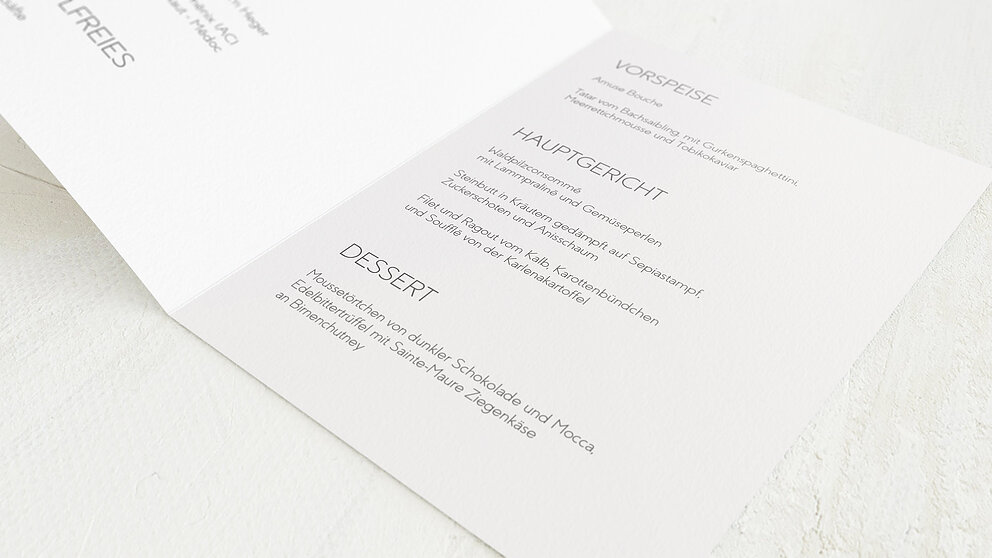 m Hager
LFREIES
VORSPEISE
Amuse Bouche
Tatar vom Bachsaibling, mit Gurkenspaghettini,
Meerrettichmousse und Tobikokaviar
HAUPTGERICHT
Waldpilzconsommé
mit Lammpraliné und Gemüseperlen
Steinbutt in Kräutern gedämpft auf Sepiastampf,
Zuckerschoten und Anisschaum
Filet und Ragout vom Kalb, Karottenbündchen
und Soufflé von der Karlenakartoffel
DESSERT
Moussetörtchen von dunkler Schokolade und Mocca,
Edelbittertrüffel mit Sainte-Maure Ziegenkäse
an Birnenchutney